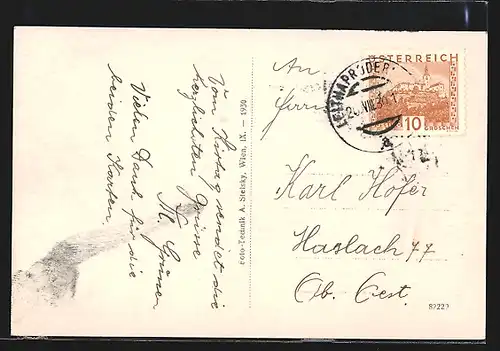 Vom Ausflug sendet die
herzlichsten Grüsse
M. Grüner
Vielen Dank für die
beiden Karten.
Foto-Technik A. Stefsky, Wien, IX. – 1950
An
Herrn
Karl Hofer
Haslach 77
Ob. Oest.
82229
ÖSTERREICH
10
GROSCHEN